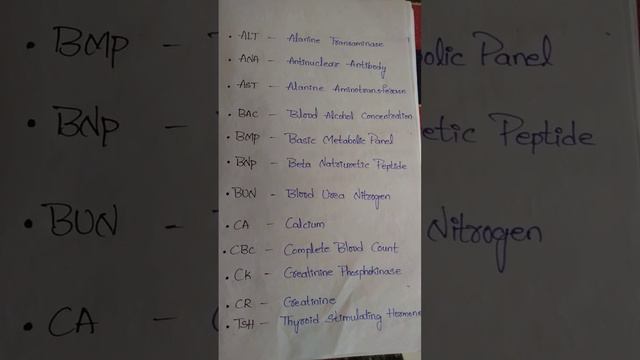 • ALT - Alanine Transaminase
• ANA - Antinuclear Antibody
• AST - Alanine Aminotransferase
• BAC - Blood Alcohol Concentration
• BMP - Basic Metabolic Panel
• BNP - Beta Natriuretic Peptide
• BUN - Blood Urea Nitrogen
• CA - Calcium
• CBC - Complete Blood Count
• CK - Creatinine Phosphokinase
• CR - Creatinine
• TSH - Thyroid Stimulating Hormone
• BMP -
olic Panel
• BNP -
etic Peptide
• BUN -
Nitrogen
• CA -